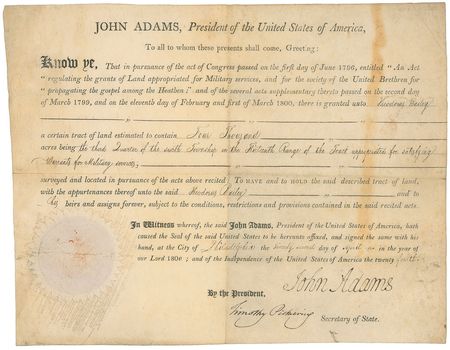 JOHN ADAMS, President of the United States of America,
To all to whom these presents shall come, Greeting:
Know ye, That in pursuance of the act of Congress passed on the first day of June 1796, entitled " An Act
" regulating the grants of Land appropriated for Military services, and for the society of the United Brethren for
" propagating the gospel among the Heathen:" and of the several acts supplementary thereto passed on the second day
of March 1799, and on the eleventh day of February and first of March 1800, there is granted unto Theodorus Bailey
a certain tract of land estimated to contain Four Thousand
acres being the Quarter of the Township in the Range of the Tract appropriated for satisfying
Warrants for Military services,
surveyed and located in pursuance of the acts above recited: To have and to hold the said described tract of land,
with the appurtenances thereof unto the said Theodorus Bailey and to
his heirs and assigns forever, subject to the conditions, restrictions and provisions contained in the said recited acts.
In Witness whereof, the said John Adams, President of the United States of America, hath
caused the Seal of the said United States to be hereunto affixed, and signed the same with his
hand, at the City of Philadelphia the twenty second day of April in the year of
our Lord 180 ; and of the Independence of the United States of America the twenty fourth.
John Adams
By the President,
Timothy Pickering Secretary of State.